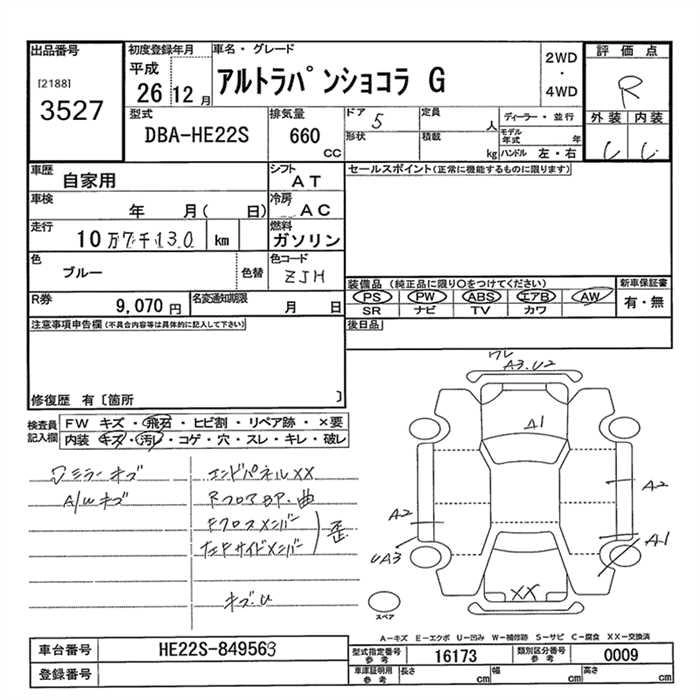 出品番号
[2188]
3527
初度登録年月
平成
26 12月
車名・グレード
アルトラパンショコラ G
2WD
・
4WD
評価点
R
外装 内装
型式
DBA-HE22S
排気量
660
CC
ドア 5
形状
定員
人
積載
kg
ディーラー・並行
モデル年式 年
ハンドル 左・右
車歴
自家用
シフト
AT
セールスポイント(正常に機能するものに限ります)
車検
年 月( 日)
冷房
AC
走行
10万7千130 km
燃料
ガソリン
色
ブルー
色替
色コード
ZJH
装備品(純正品に限り○をつけてください)
PS PW ABS エアB AW
SR ナビ TV カワ
新車保証書
有・無
R券
9,070円
名変通知期限
月 日
後日品
注意事項申告欄(不具合内容等は具体的に記入して下さい)
修復歴 有〔箇所 〕
検査員
記入欄
FW キズ・飛石・ヒビ割・リペア跡・×要
内装 キズ・汚レ・コゲ・穴・スレ・キレ・破レ
ミラーキズ
A/Wキズ
エンドパネルXX
RフロアBP・曲
Fクロスメンバー
左Fサイドメンバー
歪
キズ・U
ワレ
A3.U2
A1
A2
A2
UA3
A1
XX
スペア
A－キズ E－エクボ U－凹み W－補修跡 S－サビ C－腐食 XX－交換済
車台番号
HE22S-849563
登録番号
型式指定番号
参考
16173
類別区分番号
参考
0009
車庫証明用
参考
長さ cm
幅 cm
高さ cm